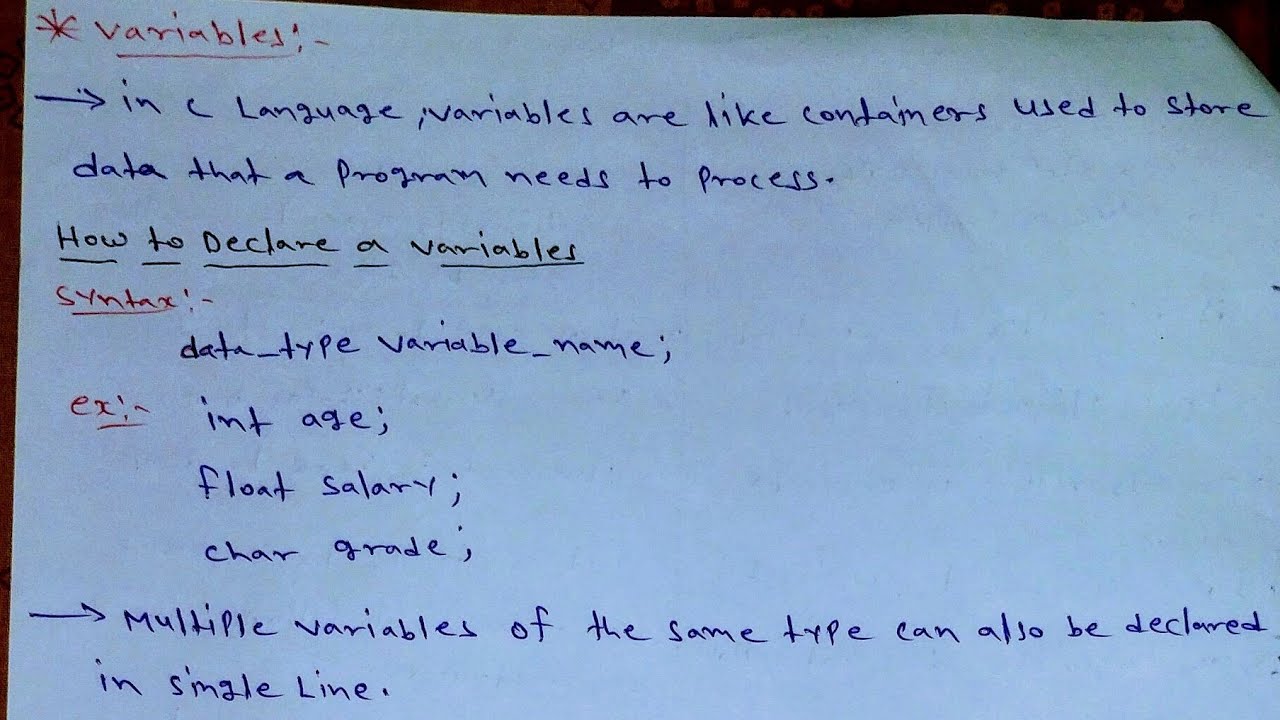 * Variables:-
→ in C Language, variables are like containers used to store
data that a program needs to process.
How to Declare a variables
Syntax:-
data_type variable_name;
ex:- int age;
float salary;
char grade;
→ Multiple variables of the same type can also be declared
in single Line.